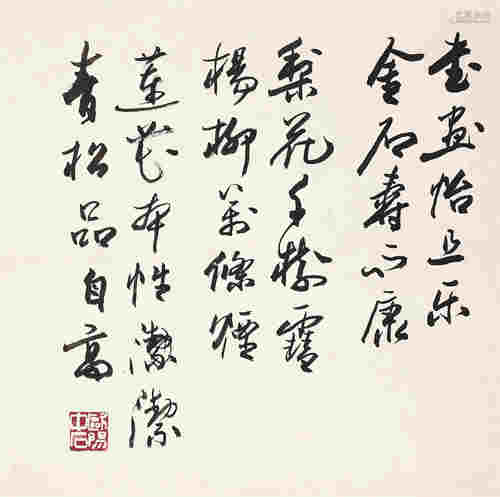 書畫怡且乐
金石壽而康
梨花千樹雪
楊柳萬條煙
蓮花本性潔
青松品自高
歐陽中石